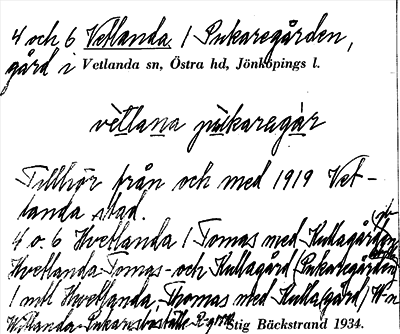 4 och 6 Vetlanda / Pukaregården,
gård i Vetlanda sn, Östra hd, Jönköpings l.
vètlana pùkaregàr
Tillhör från och med 1919 Vet-
landa stad.
4 o. 6 Hvetlanda / Tomas med Kullagården
Hvetlanda Tomas- och Kullagård, Pukaregården
1 mtl Hvetlanda, Thomas med Kullagård,
Stig Bäckstrand 1934.